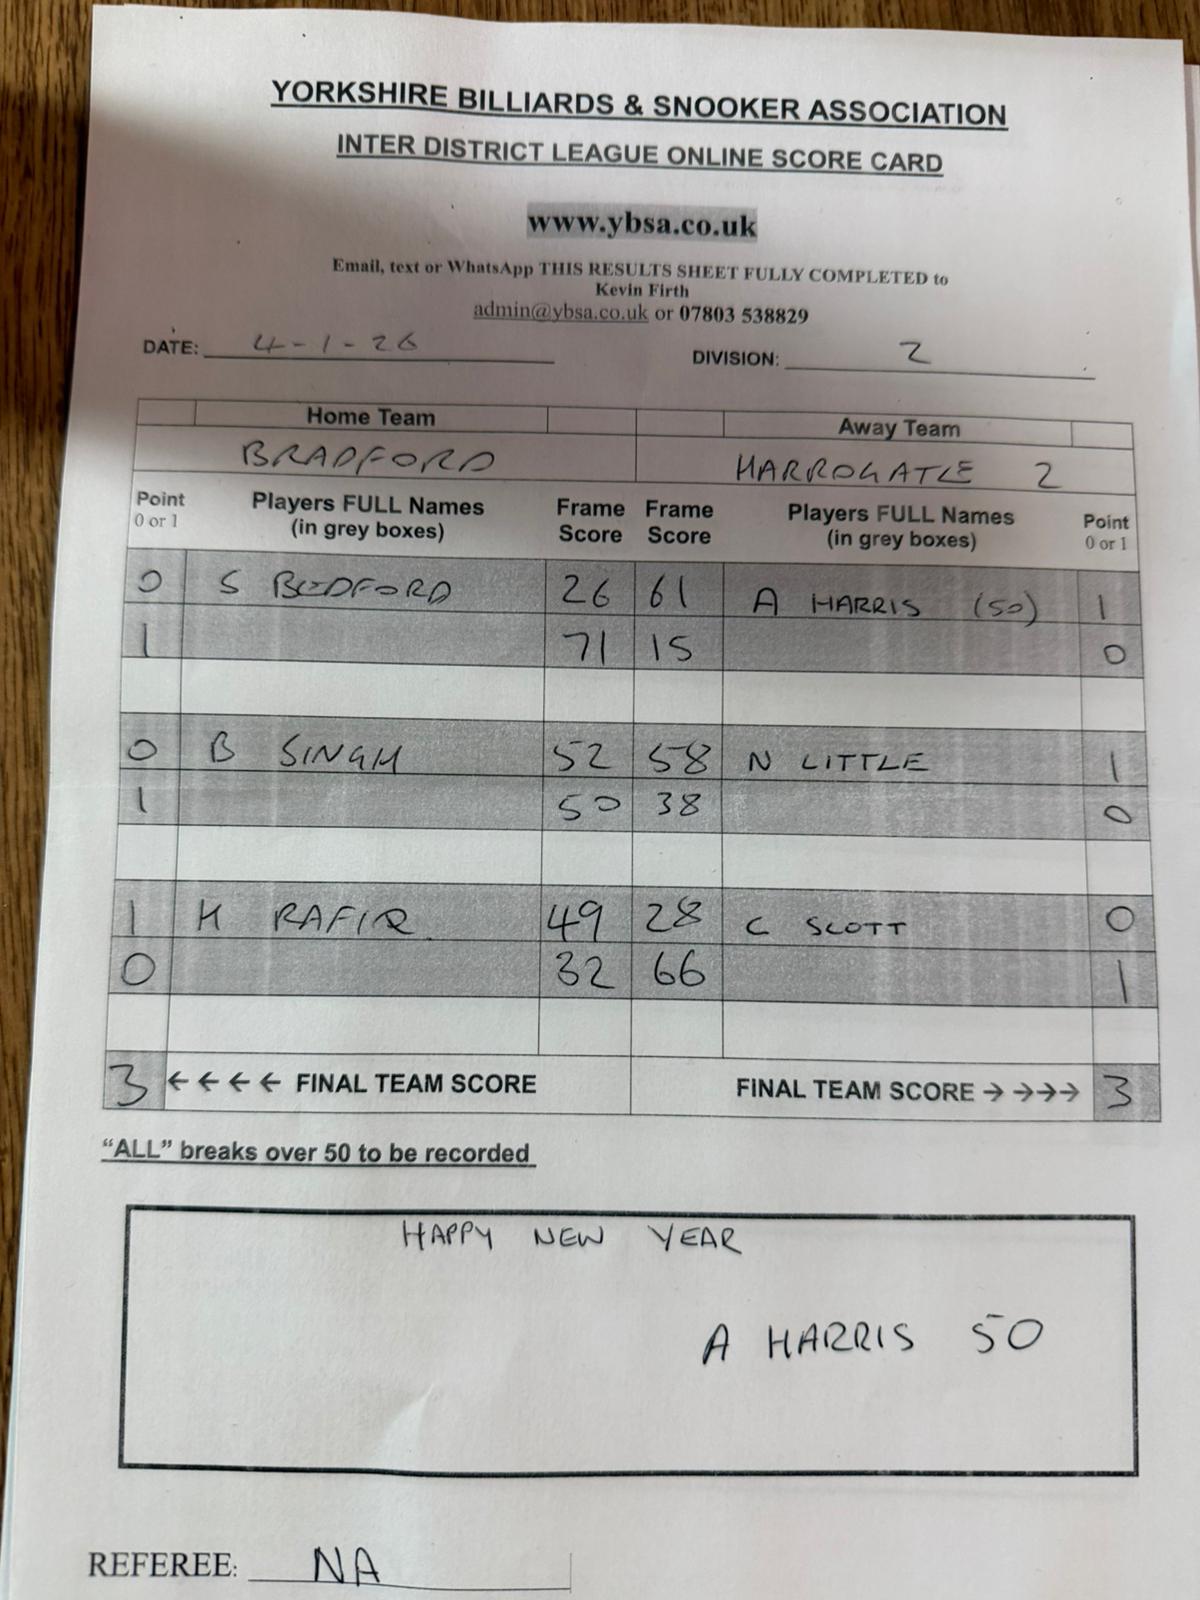 YORKSHIRE BILLIARDS & SNOOKER ASSOCIATION
INTER DISTRICT LEAGUE ONLINE SCORE CARD
www.ybsa.co.uk
Email, text or WhatsApp THIS RESULTS SHEET FULLY COMPLETED to
Kevin Firth
admin@ybsa.co.uk or 07803 538829
DATE: 4-1-26 DIVISION: 2
Home Team Away Team
BRADFORD HARROGATLE 2
Point 0 or 1 Players FULL Names (in grey boxes) Frame Score Frame Score Players FULL Names (in grey boxes) Point 0 or 1
0 S BEDFORD 26 61 A HARRIS (50) 1
1 71 15 0
0 B SINGH 52 58 N LITTLE 1
1 50 38 0
1 H RAFIQ 49 28 C SCOTT 0
0 32 66 1
3 ←←←← FINAL TEAM SCORE FINAL TEAM SCORE →→→→ 3
"ALL" breaks over 50 to be recorded
HAPPY NEW YEAR
A HARRIS 50
REFEREE: NA